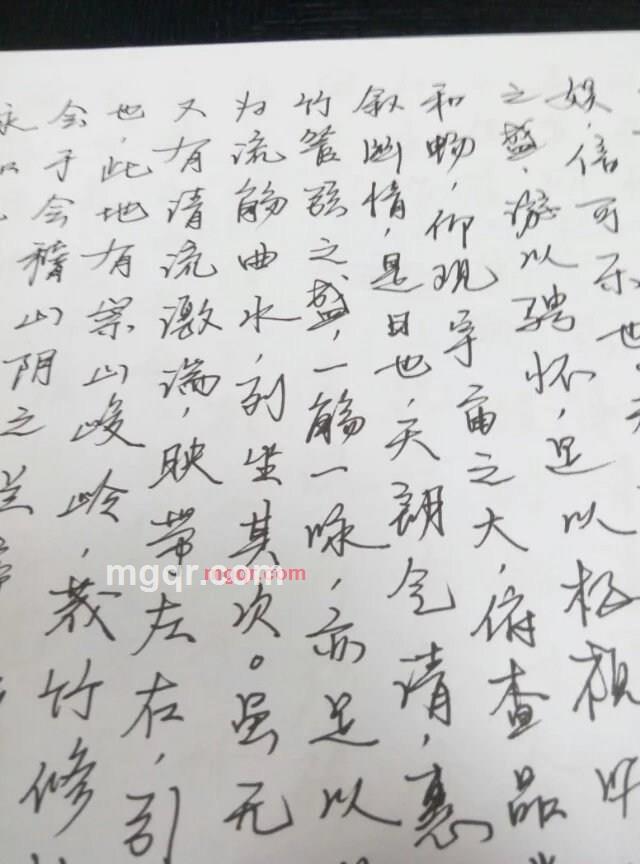 永和
会于会稽山阴之兰亭
也,此地有崇山峻岭,茂竹修
又有清流激湍,映带左右,引
为流觞曲水,列坐其次。虽无
竹管弦之盛,一觞一咏,亦足以
叙幽情,是日也,天朗气清,惠
和畅,仰观宇宙之大,俯查品
之盛,游以骋怀,足以极视听
娱,信可乐也
mgqr.com
mgqr.com